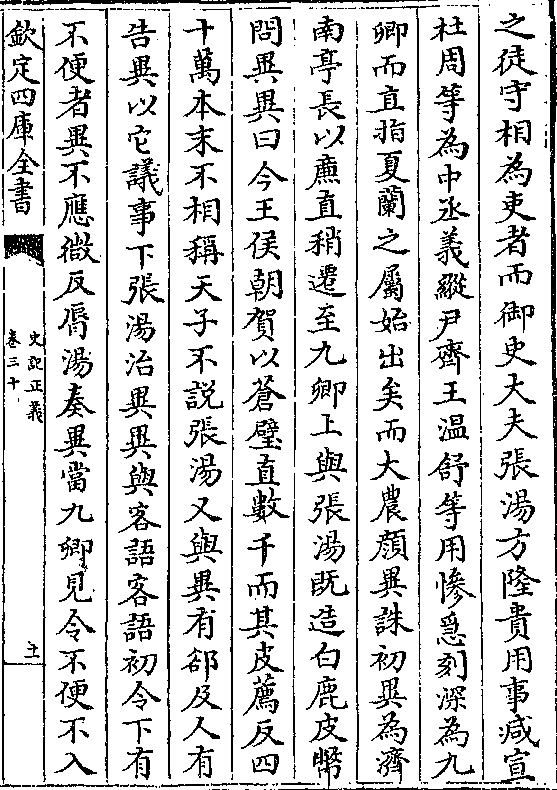 之徒守相為吏者而御史大夫張湯方隆貴用事減宣
杜周等為中丞義縱尹齊王溫舒等用慘急刻深為九
卿而直指夏蘭之屬始出矣而大農顔異誅初異為濟
南亭長以亷直稍遷至九卿上與張湯既造白鹿皮幣
問異異曰今王侯朝賀以蒼璧直數千而其皮薦反四
十萬本末不相稱天子不説張湯又與異有郤及人有
告異以它議事下張湯治異異與客語客語初令下有
不便者異不應微反脣湯奏異當九卿見令不便不入
欽定四庫全書
史記正義
卷三十